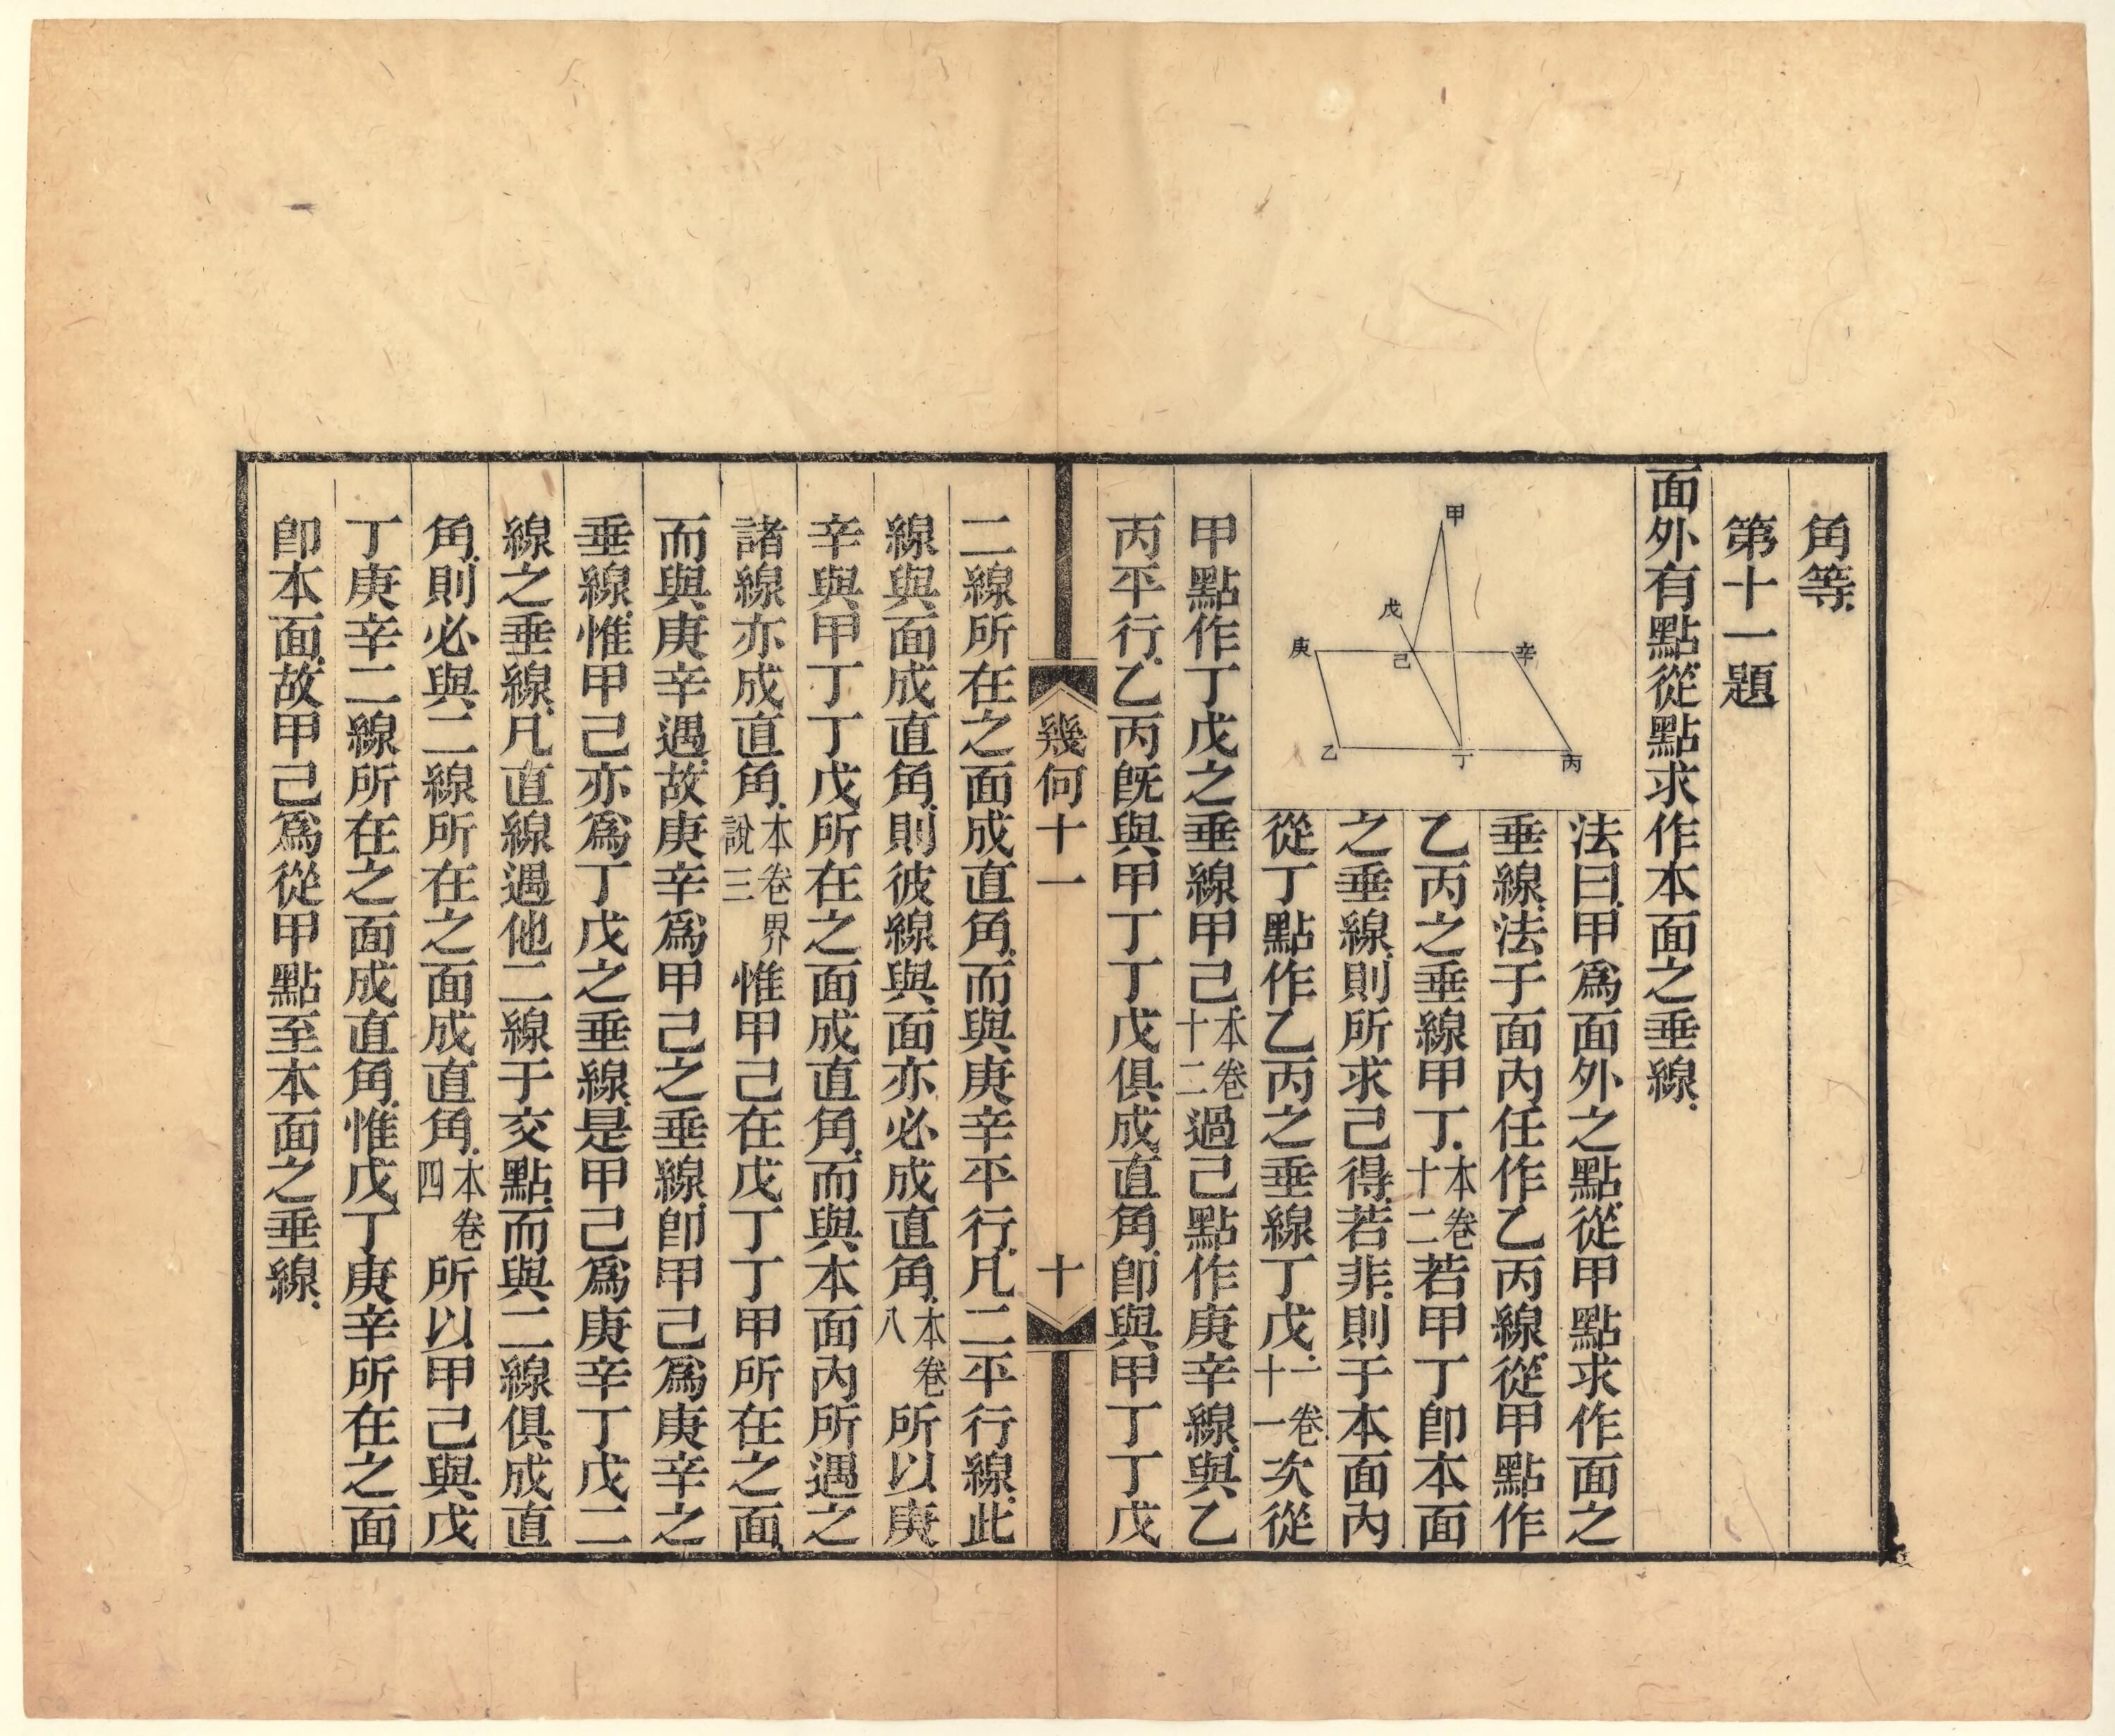 角等
第十一題
面外有點從點求作本面之垂線
甲
戊
庚
己
辛
乙
丁
丙
法曰甲爲面外之點從甲點求作面之
垂線法于面內任作乙丙線從甲點作
乙丙之垂線甲丁本卷十二若甲丁卽本面
之垂線則所求已得若非則于本面內
從丁點作乙丙之垂線丁戊一卷十一次從
甲點作丁戊之垂線甲己本卷十二過己點作庚辛線與乙
丙平行乙丙旣與甲丁丁戊俱成直角卽與甲丁丁戊
幾何十一
十
二線所在之面成直角而與庚辛平行凡二平行線此
線與面成直角則彼線與面亦必成直角本卷八所以庚
辛與甲丁丁戊所在之面成直角而與本面內所遇之
諸線亦成直角本卷界說三惟甲己在戊丁丁甲所在之面
而與庚辛遇故庚辛爲甲己之垂線卽甲己爲庚辛之
垂線惟甲己亦爲丁戊之垂線是甲己爲庚辛丁戊二
線之垂線凡直線遇他二線于交點而與二線俱成直
角則必與二線所在之面成直角本卷四所以甲己與戊
丁庚辛二線所在之面成直角惟戊丁庚辛所在之面
卽本面故甲己爲從甲點至本面之垂線